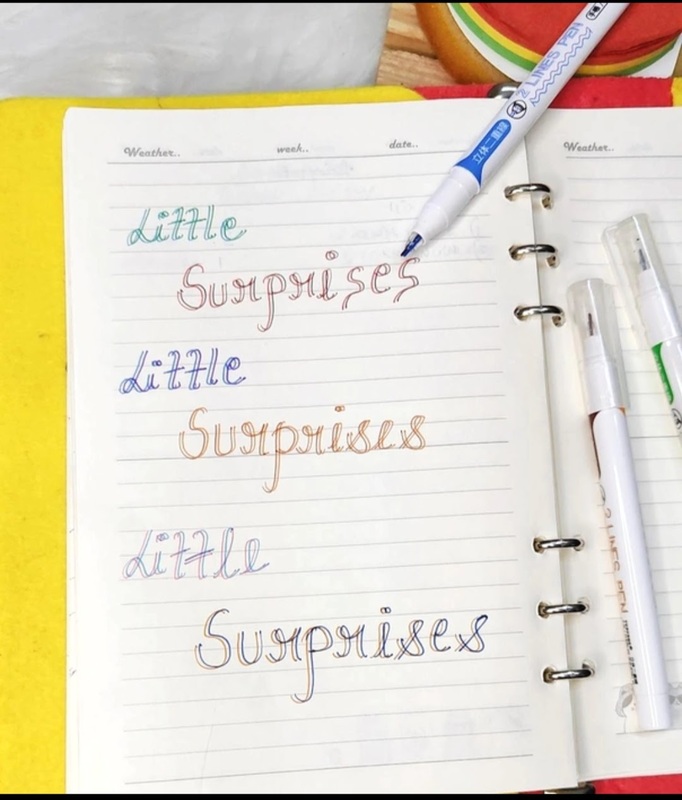 Weather.. week.. date..
Weather..
2 LINES PEN
立体二重線
Little
Surprises
Little
Surprises
Little
Surprises
2 LINES PEN